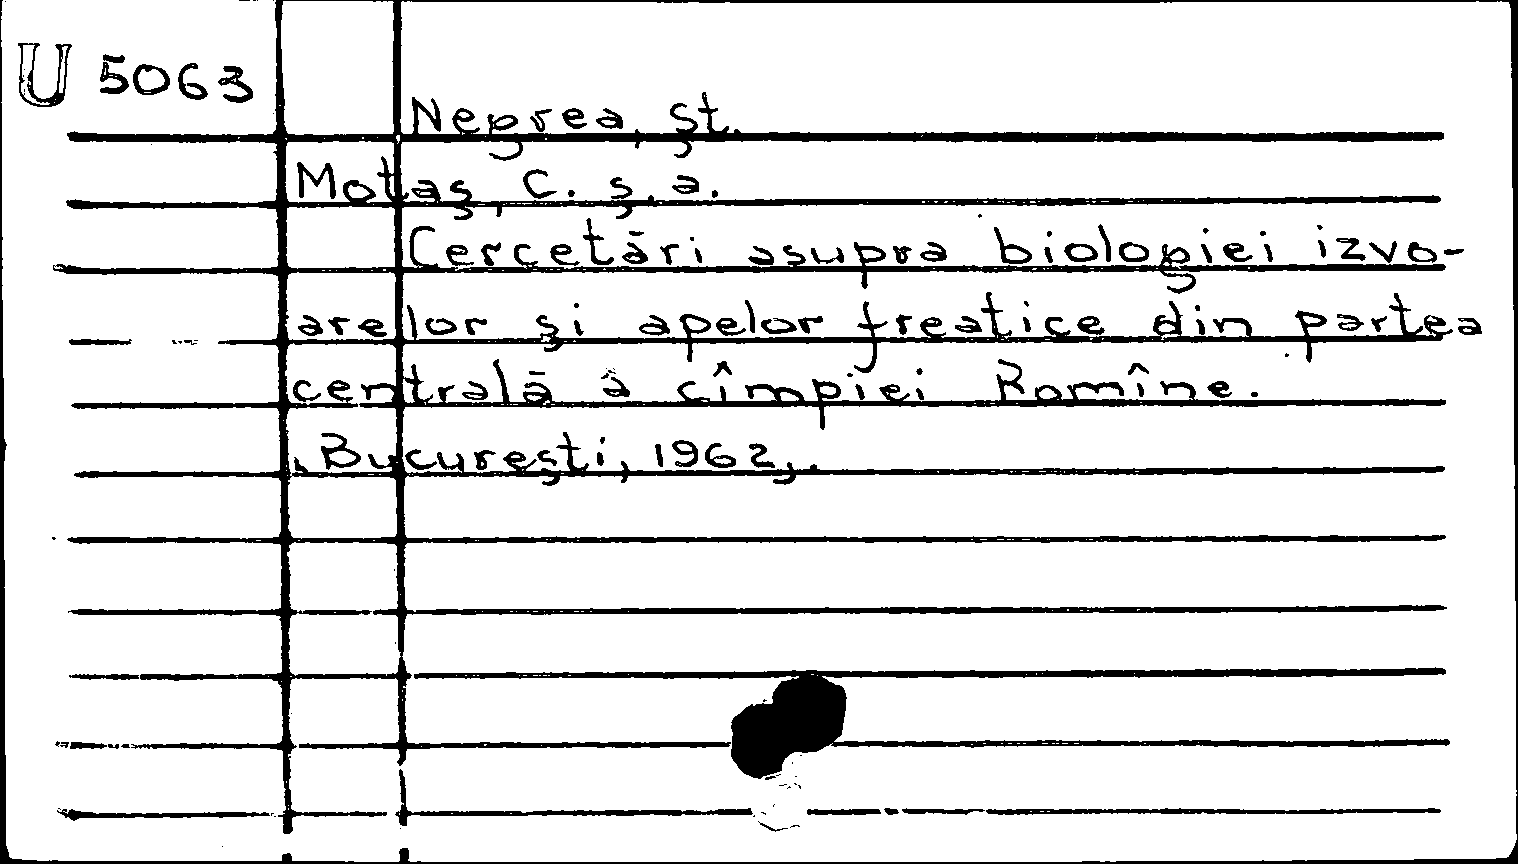 U 5063
Negrea, Șt.
Motaș, C. ș. a.
Cercetări asupra biologiei izvo-
arelor și apelor freatice din partea
centrală a cîmpiei Romîne.
București, 1962,.